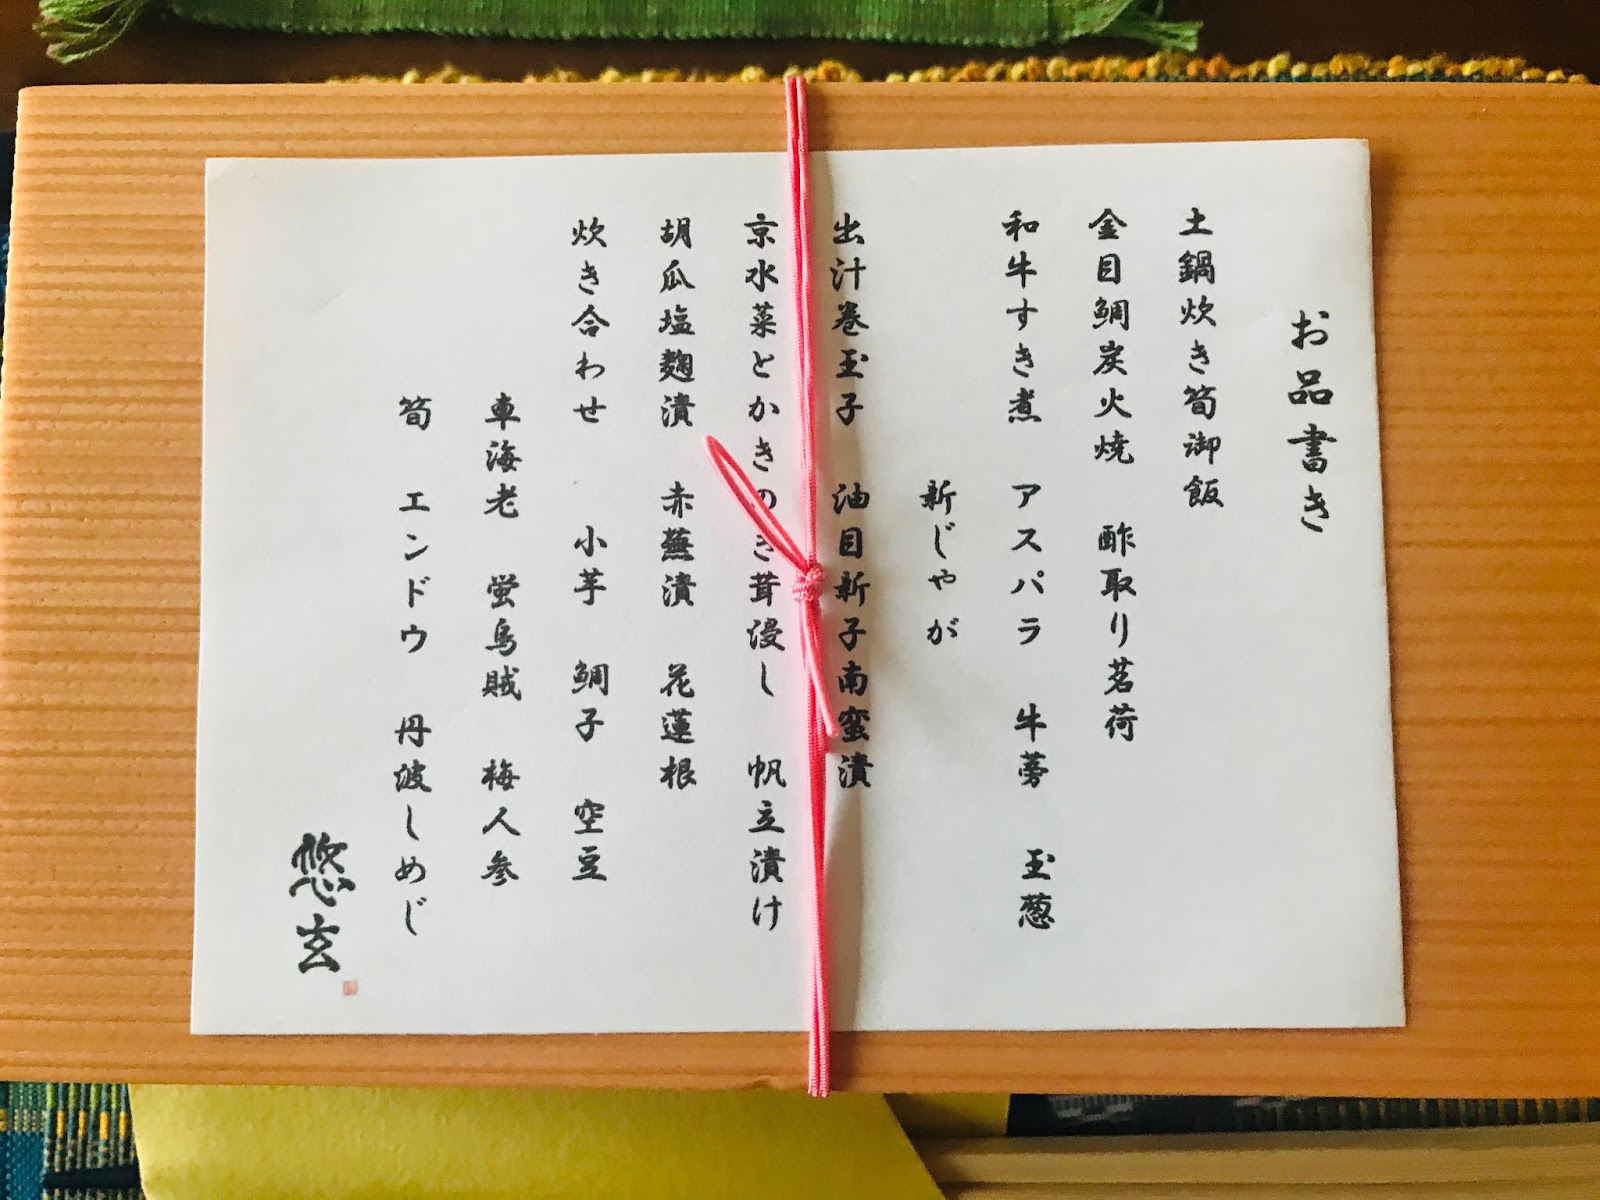 お品書き
土鍋炊き筍御飯
金目鯛炭火焼 酢取り茗荷
和牛すき煮 アスパラ 牛蒡 玉葱
新じゃが
出汁巻玉子 油目新子南蛮漬
京水菜とかきのき茸浸し 帆立漬け
胡瓜塩麹漬 赤蕪漬 花蓮根
炊き合わせ 小芋 鯛子 空豆
車海老 蛍烏賊 梅人参
筍 エンドウ 丹波しめじ
悠玄